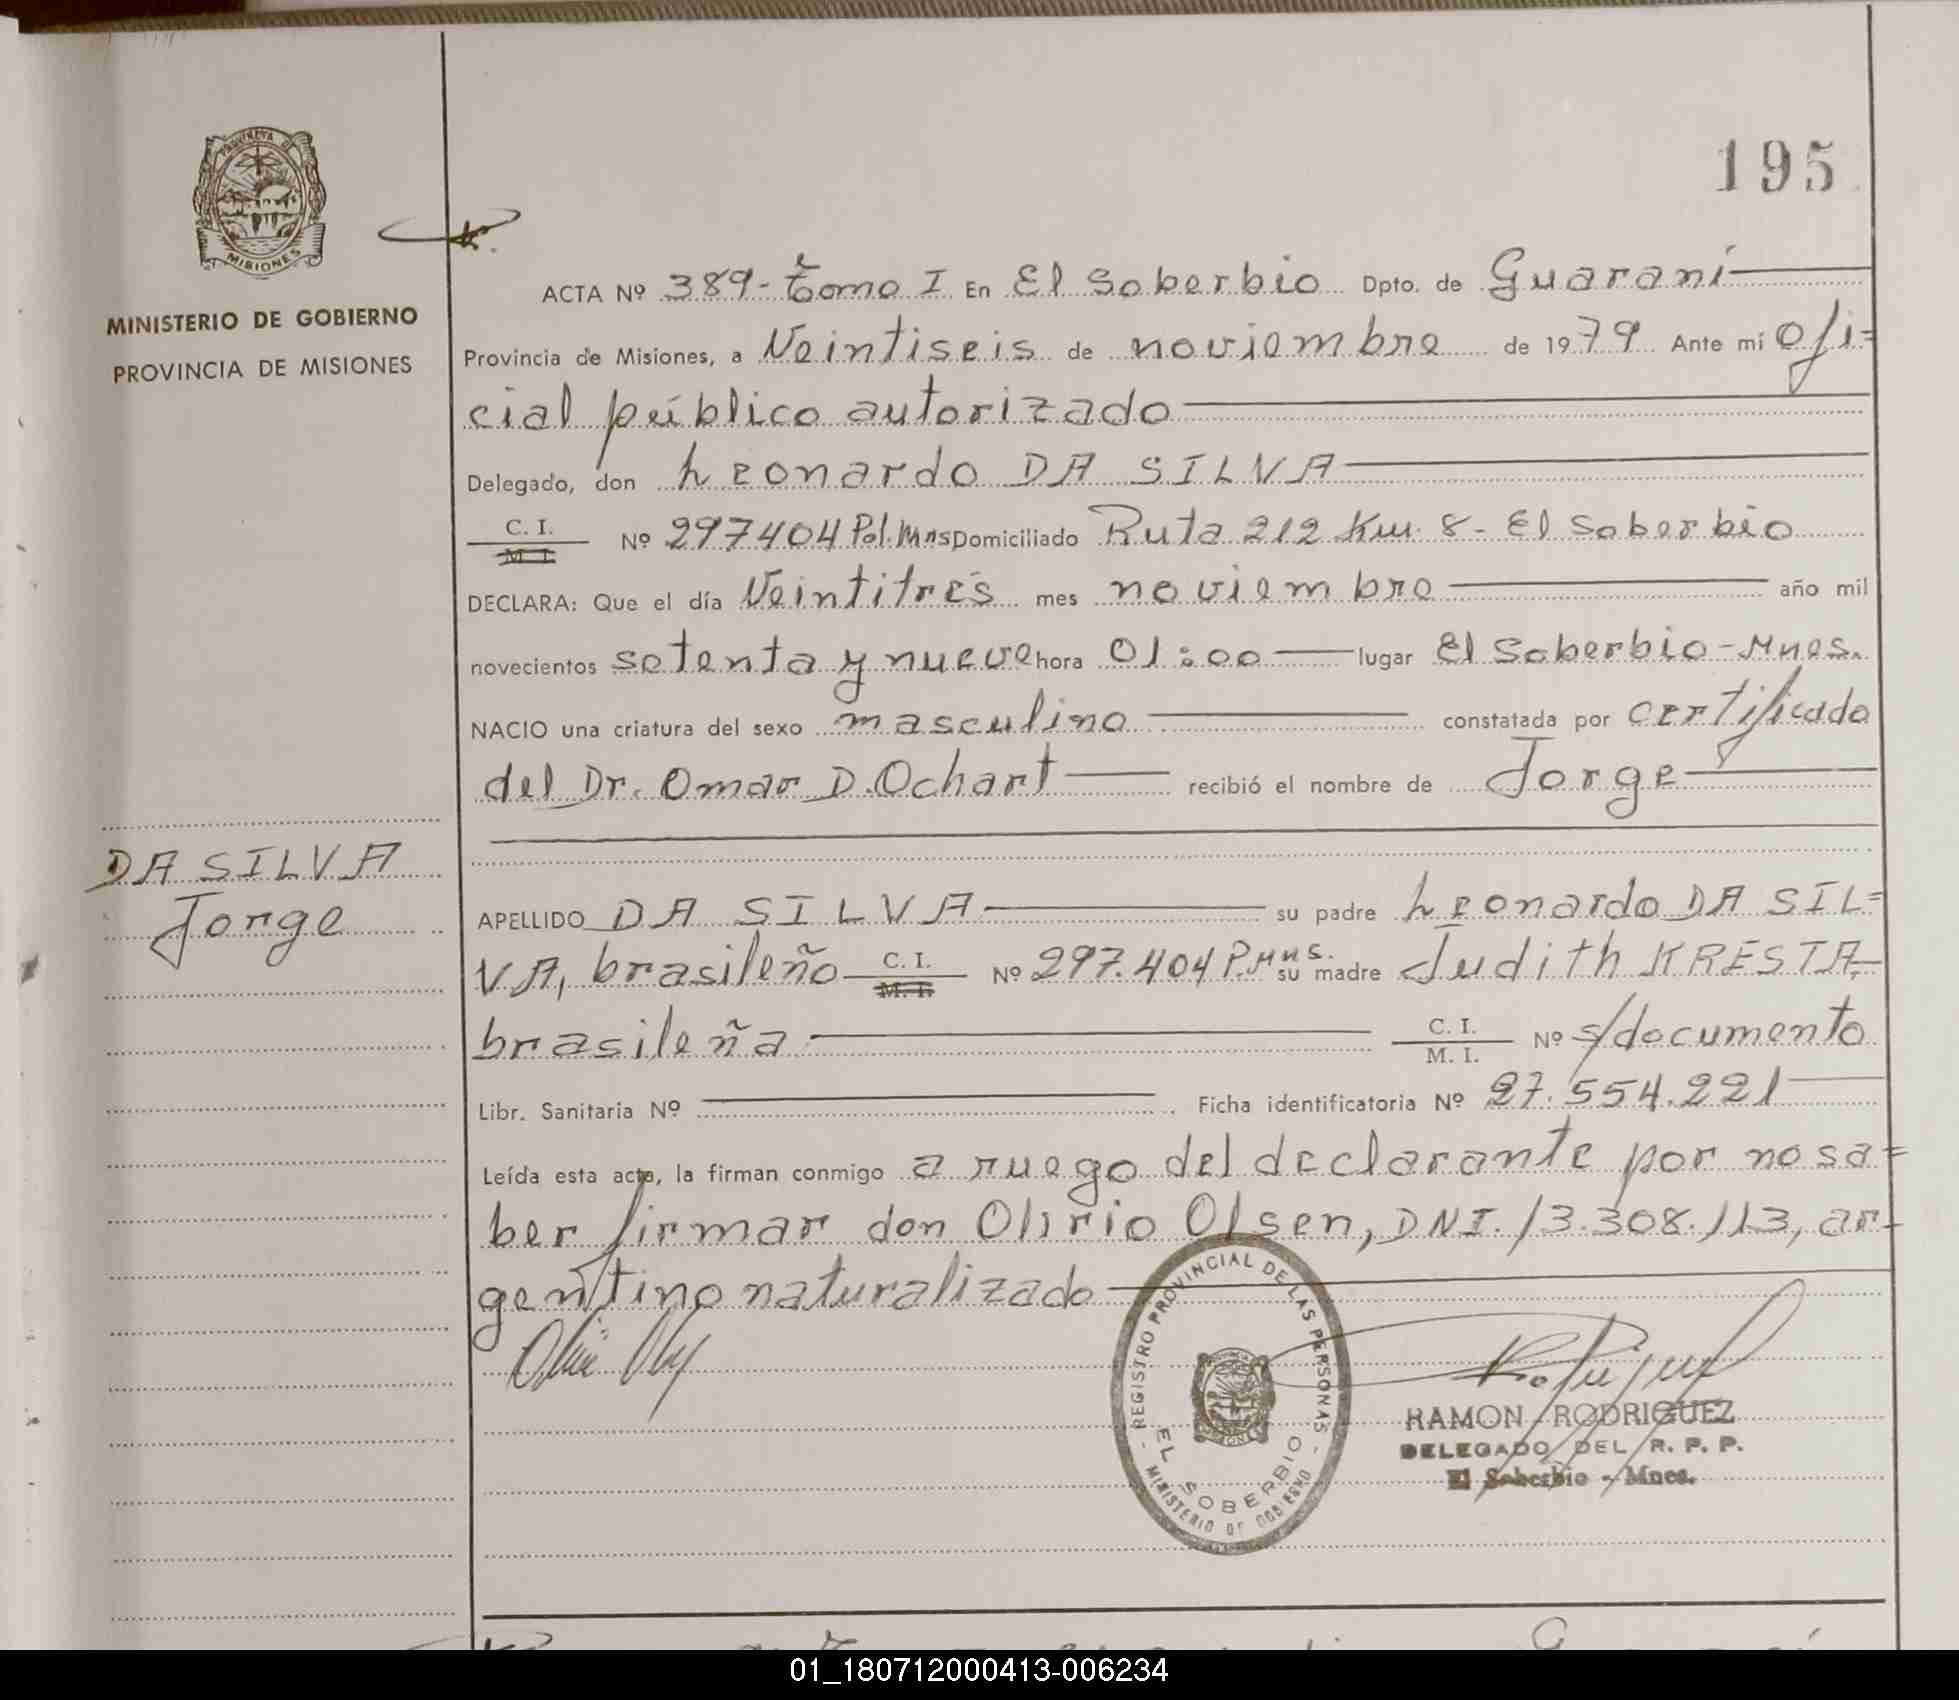 195
PROVINCIA DE
MISIONES
MINISTERIO DE GOBIERNO
PROVINCIA DE MISIONES
ACTA Nº 389-Tomo I En El Soberbio Dpto. de Guaraní
Provincia de Misiones, a Veintiseis de noviembre de 1979 Ante mí Ofi=
cial público autorizado
Delegado, don Leonardo DA SILVA
C. I.
M. I. Nº 297404 Pol. Mns Domiciliado Ruta 212 Km. 8 - El Soberbio
DECLARA: Que el día Veintitrés mes noviembre año mil
novecientos setenta y nueve hora 01:00 lugar El Soberbio-Mnes.
NACIO una criatura del sexo masculino constatada por certificado
del Dr. Omar D. Ochart recibió el nombre de Jorge
DA SILVA
Jorge
APELLIDO DA SILVA su padre Leonardo DA SIL=
VA, brasileño C. I.
M. I. Nº 297.404 P. Mns. su madre Judith KRESTA,
brasileña C. I.
M. I. Nº s/documento
Libr. Sanitaria Nº Ficha identificatoria Nº 27.554.221
Leída esta acta, la firman conmigo a ruego del declarante por no sa=
ber firmar don Olirio Olsen, DNI. 13.308.113, ar-
gentino naturalizado
REGISTRO PROVINCIAL DE LAS PERSONAS
EL SOBERBIO
MINISTERIO DE GOBIERNO
RAMON RODRIGUEZ
DELEGADO DEL R. P. P.
El Soberbio - Mnes.
01_180712000413-006234